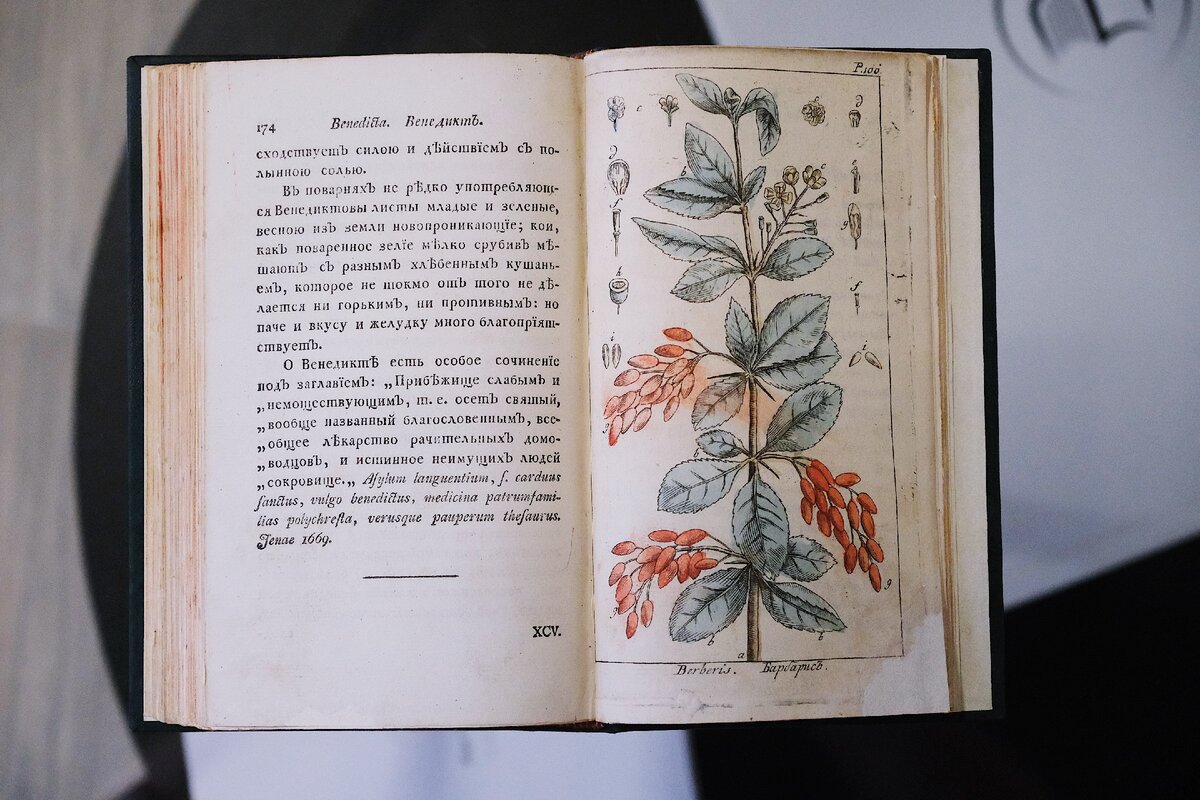 174 Benedicta. Венедиктъ.
сходствуетъ силою и дѣйствїемъ съ по-
лынною солью.
Въ поварняхъ не рѣдко употребляют-
ся Венедиктовы листы младые и зеленые,
весною изъ земли новопроникающїе; кои,
какъ поваренное зелїе мѣлко срубивъ мѣ-
шаютъ съ разнымъ хлѣбеннымъ кушань-
емъ, которое не токмо отъ того не дѣ-
лается ни горькимъ, ни противнымъ: но
паче и вкусу и желудку много благопрїят-
ствуетъ.
О Венедиктѣ есть особое сочиненїе
подъ заглавїемъ: „Прибѣжище слабымъ и
„немоществующимъ, т. е. осетъ святый,
„вообще названный благословеннымъ, все-
„общее лѣкарство рачительныхъ домо-
„водцовъ, и истинное неимущихъ людей
„сокровище.„ Aſylum languentium, ſ. carduus
ſanctus, vulgo benedictus, medicina patrumfami-
lias polychreſta, verusque pauperum theſaurus.
Jenae 1669.
XCV.
P. 100
c
c
d
d
e
f
g
h
f
i
i
b
c
g
g
g
b
b
a
Berberis. Барбарисъ.